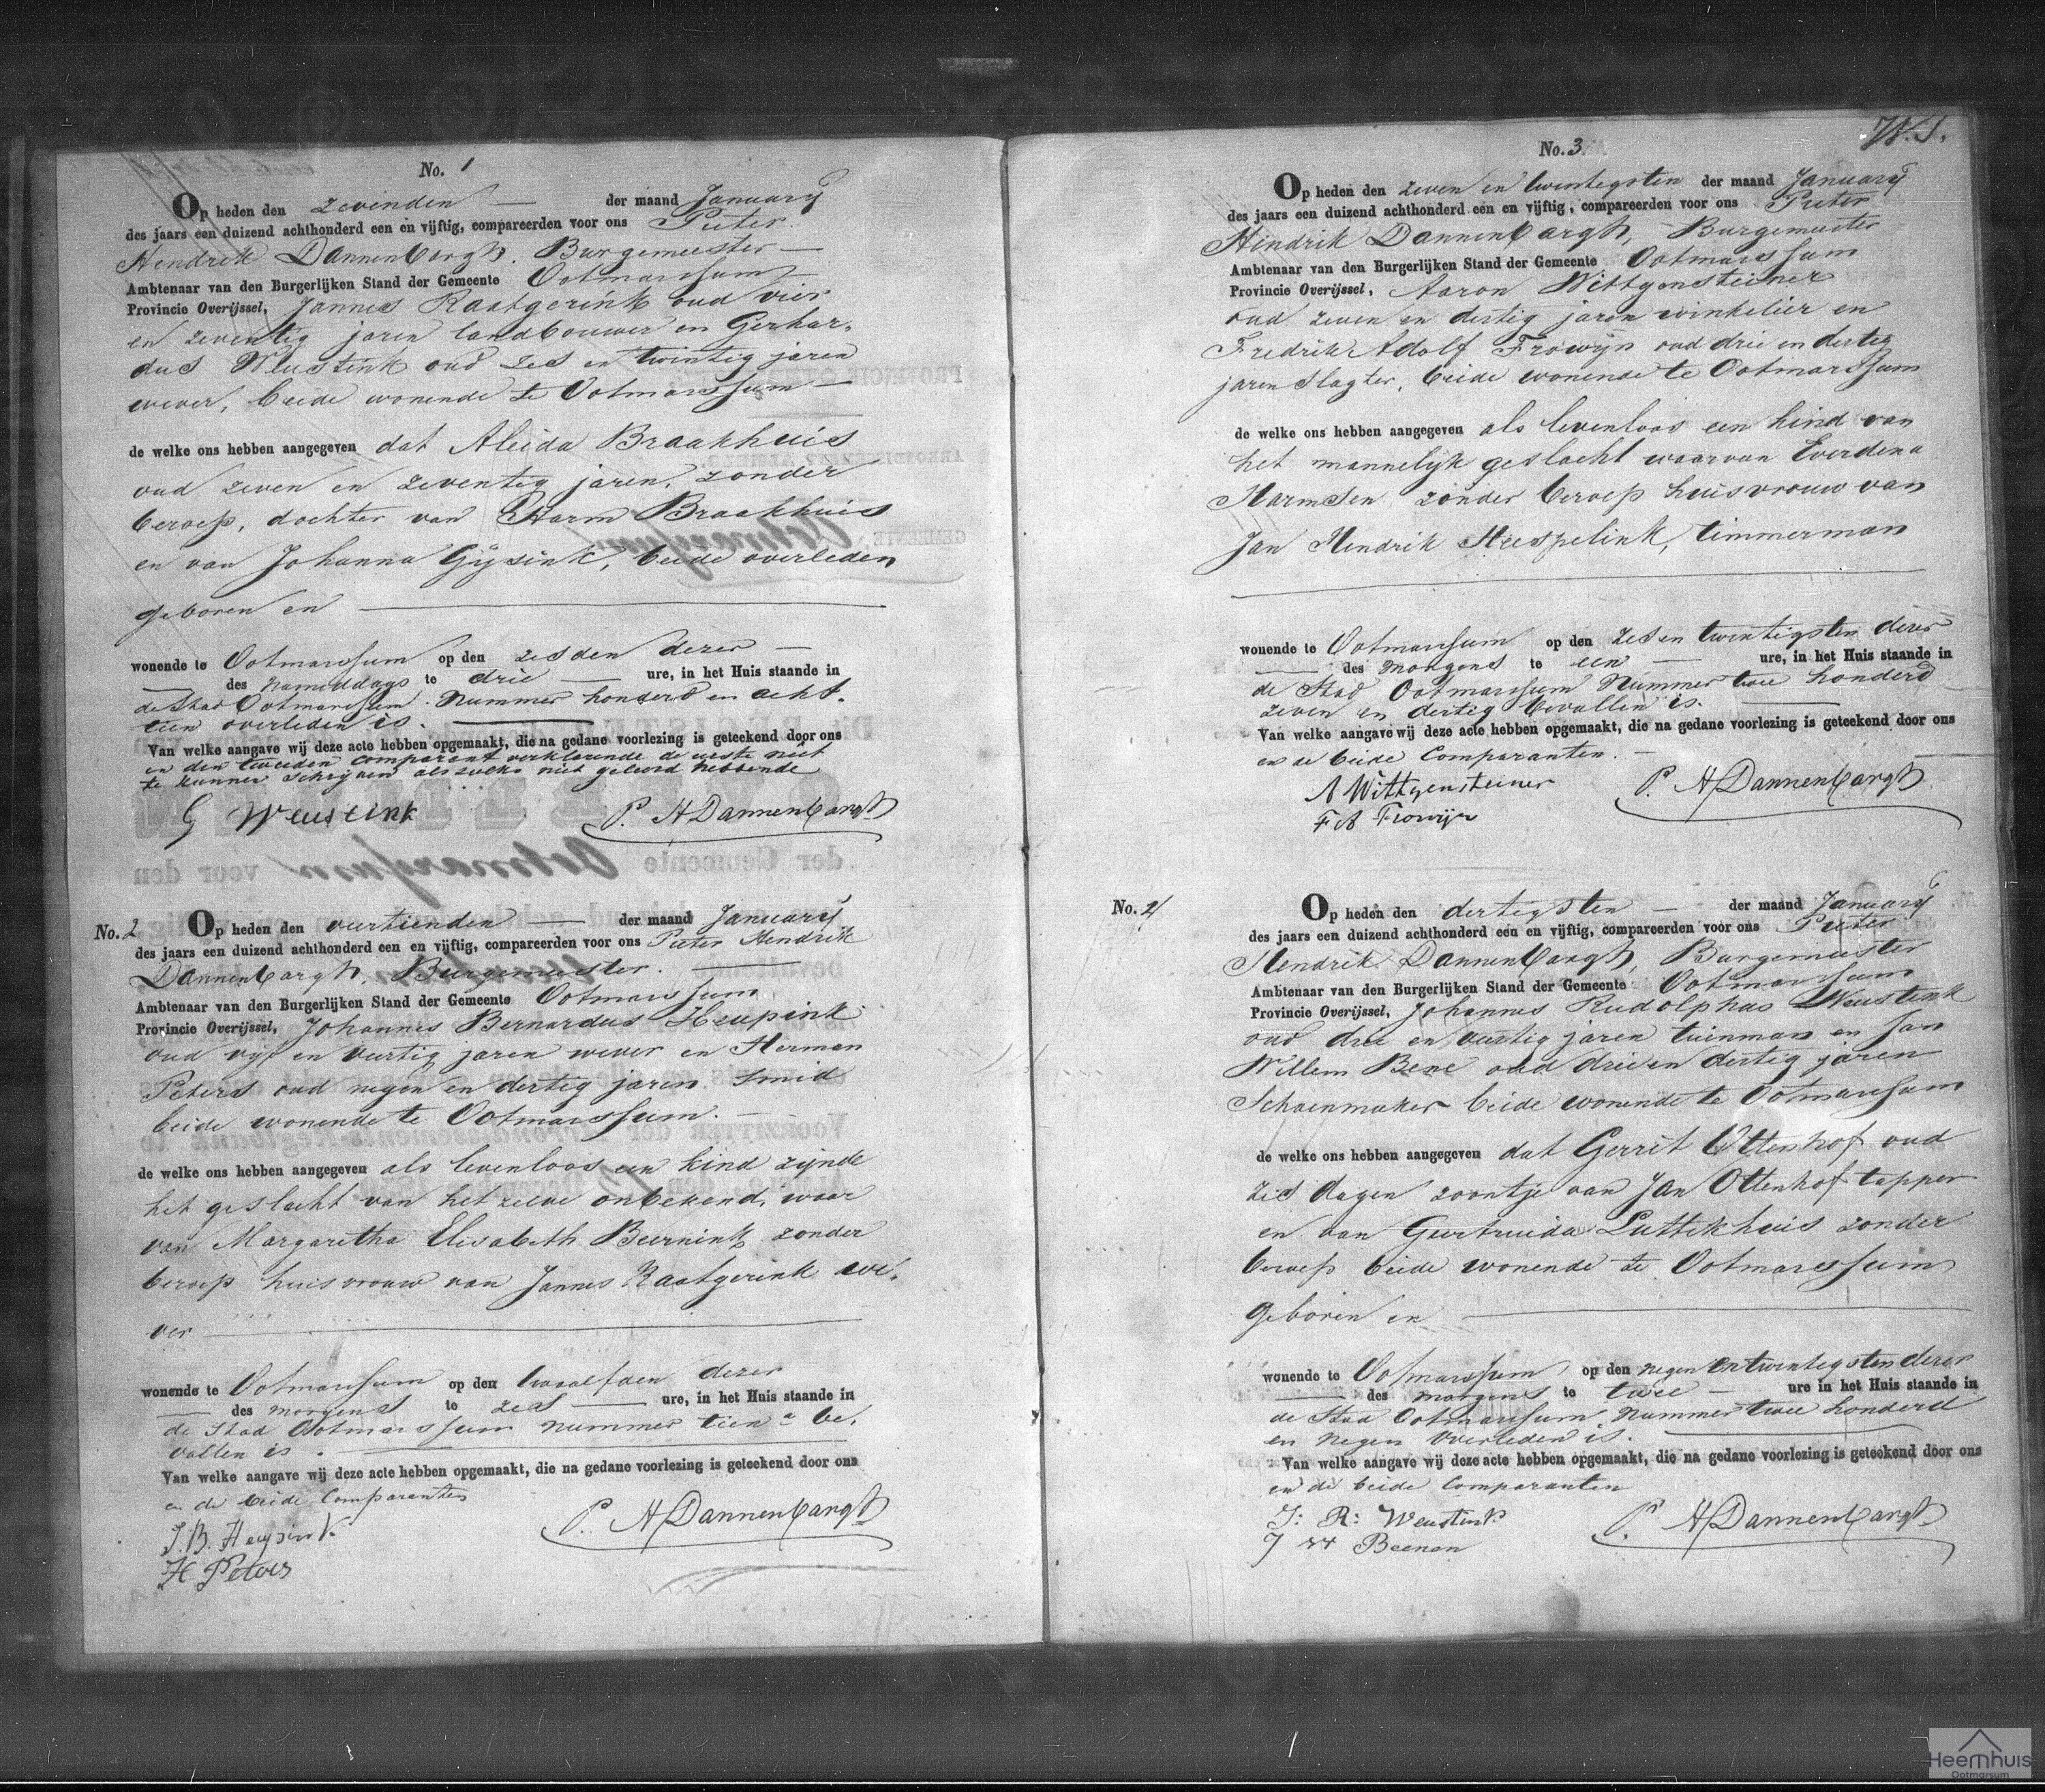 No. 1
Op heden den zevenden — der maand January
des jaars een duizend achthonderd een en vijftig, compareerden voor ons Pieter
Hendrik Dannenbargh, Burgemeester —
Ambtenaar van den Burgerlijken Stand der Gemeente Ootmarssum
Provincie Overijssel, Jannes Raatgerink oud vier
en zeventig jaren landbouwer en Gerhar-
dus Weustink oud zes en twintig jaren
wever, beide wonende te Ootmarssum —
de welke ons hebben aangegeven dat Aleida Braakhuis
oud zeven en zeventig jaren, zonder
beroep, dochter van Harm Braakhuis
en van Johanna Gijsink, beide overleden
geboren en —
wonende te Ootmarssum op den zesden dezer —
— des namiddags te drie — ure, in het Huis staande in
de Stad Ootmarssum nummer honderd en acht-
tien overleden is. —
Van welke aangave wij deze acte hebben opgemaakt, die na gedane voorlezing is geteekend door ons
en den tweeden comparant verklarende de eerste niet
te kunnen schrijven als zulks niet geleerd hebbende
G Weustink P. H Dannenbargh
No. 2 Op heden den veertienden — der maand January
des jaars een duizend achthonderd een en vijftig, compareerden voor ons Pieter Hendrik
Dannenbargh, Burgemeester. —
Ambtenaar van den Burgerlijken Stand der Gemeente Ootmarssum
Provincie Overijssel, Johannes Bernardus Heupink
oud vijf en veertig jaren wever en Herman
Peters oud negen en dertig jaren smid
beide wonende te Ootmarssum. —
de welke ons hebben aangegeven als levenloos een kind zijnde
het geslacht van hetzelve onbekend, waar
van Margaretha Elisabeth Beernink zonder
beroep huisvrouw van Jannes Raatgerink we-
ver —
wonende te Ootmarssum op den twaalfden dezer
— des morgens te zes — ure, in het Huis staande in
de Stad Ootmarssum nummer tien a be-
vallen is. —
Van welke aangave wij deze acte hebben opgemaakt, die na gedane voorlezing is geteekend door ons
en de beide Comparanten
J.B. Heupink P. H Dannenbargh
H Peters
W. S.
No. 3
Op heden den zeven en twintigsten der maand January
des jaars een duizend achthonderd een en vijftig, compareerden voor ons Pieter
Hindrik Dannenbargh, Burgemeester
Ambtenaar van den Burgerlijken Stand der Gemeente Ootmarssum
Provincie Overijssel, Aaron Wittgensteiner
oud zeven en dertig jaren winkelier en
Fredrik Adolf Frowijn oud drie en dertig
jaren slagter, beide wonende te Ootmarssum
de welke ons hebben aangegeven als levenloos een kind van
het mannelijk geslacht waarvan Everdena
Harmsen zonder beroep huisvrouw van
Jan Hendrik Heespelink, timmerman
wonende te Ootmarssum op den zes en twintigsten dezer
— des morgens te een — ure, in het Huis staande in
de Stad Ootmarssum Nummer twee honderd
zeven en dertig bevallen is. —
Van welke aangave wij deze acte hebben opgemaakt, die na gedane voorlezing is geteekend door ons
en de beide Comparanten. —
A Wittgensteiner P. H Dannenbargh
F A Frowijn
No. 4 Op heden den dertigsten — der maand January
des jaars een duizend achthonderd een en vijftig, compareerden voor ons Pieter
Hendrik Dannenbargh, Burgemeester
Ambtenaar van den Burgerlijken Stand der Gemeente Ootmarssum
Provincie Overijssel, Johannes Rudolphus Weustink
oud drie en veertig jaren tuinman en Jan
Willem Bene oud drie en dertig jaren
Schoenmaker beide wonende te Ootmarssum
de welke ons hebben aangegeven dat Gerrit Ottenhof oud
zes dagen zoontje van Jan Ottenhof tapper
en van Geertruida Luttikhuis zonder
beroep beide wonende te Ootmarssum
geboren en —
wonende te Ootmarssum op den negen en twintigsten dezer
— des morgens te twee — ure in het Huis staande in
de Stad Ootmarssum, nummer twee honderd
en negen overleden is. —
Van welke aangave wij deze acte hebben opgemaakt, die na gedane voorlezing is geteekend door ons
en de beide Comparanten
J: R: Weustink P. H Dannenbargh
J W Beenen
Heemhuis
Ootmarsum